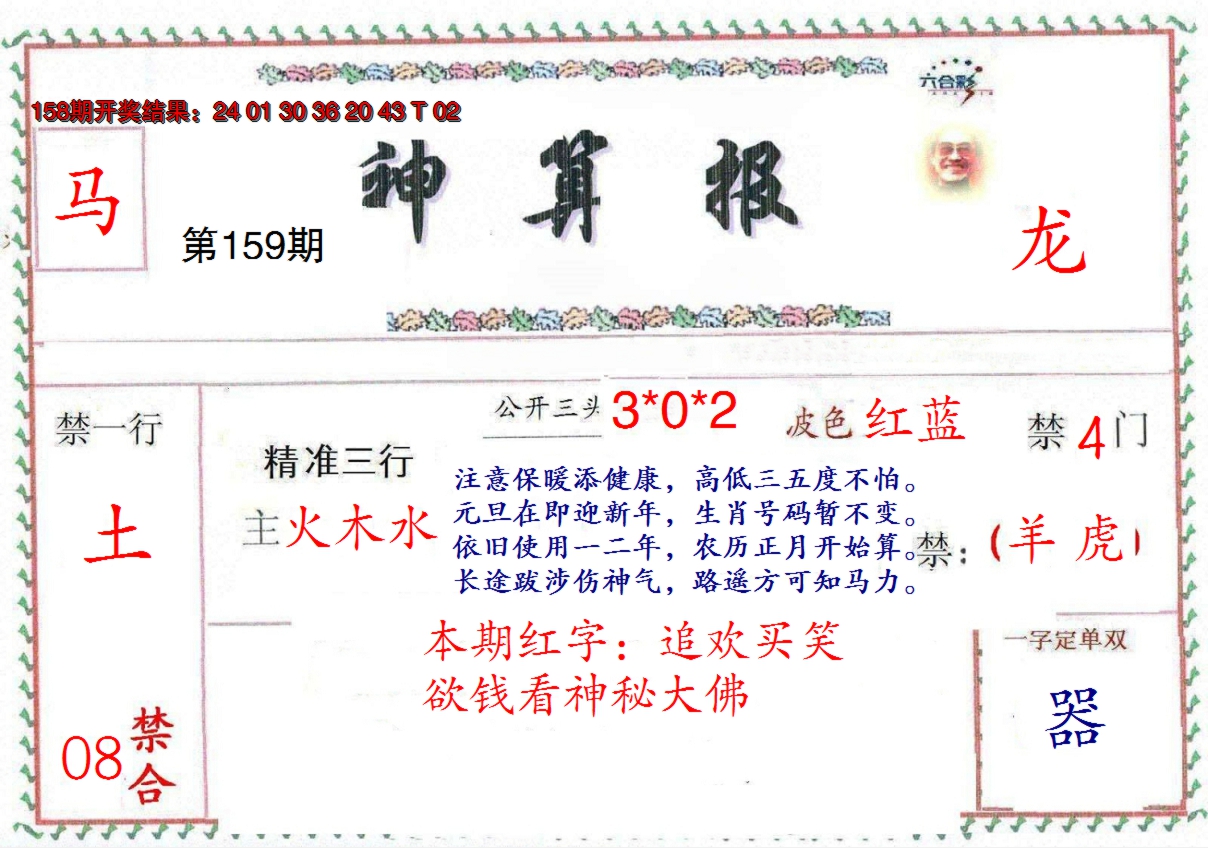 六合彩
158期开奖结果：24 01 30 36 20 43 T 02
神算报
马
第159期
龙
公开三头 3*0*2
波色 红蓝
禁4门
禁一行
土
精准三行
主火木水
注意保暖添健康，高低三五度不怕。
元旦在即迎新年，生肖号码暂不变。
依旧使用一二年，农历正月开始算。
长途跋涉伤神气，路遥方可知马力。
禁：（羊 虎）
本期红字：追欢买笑
欲钱看神秘大佛
一字定单双
器
08禁合